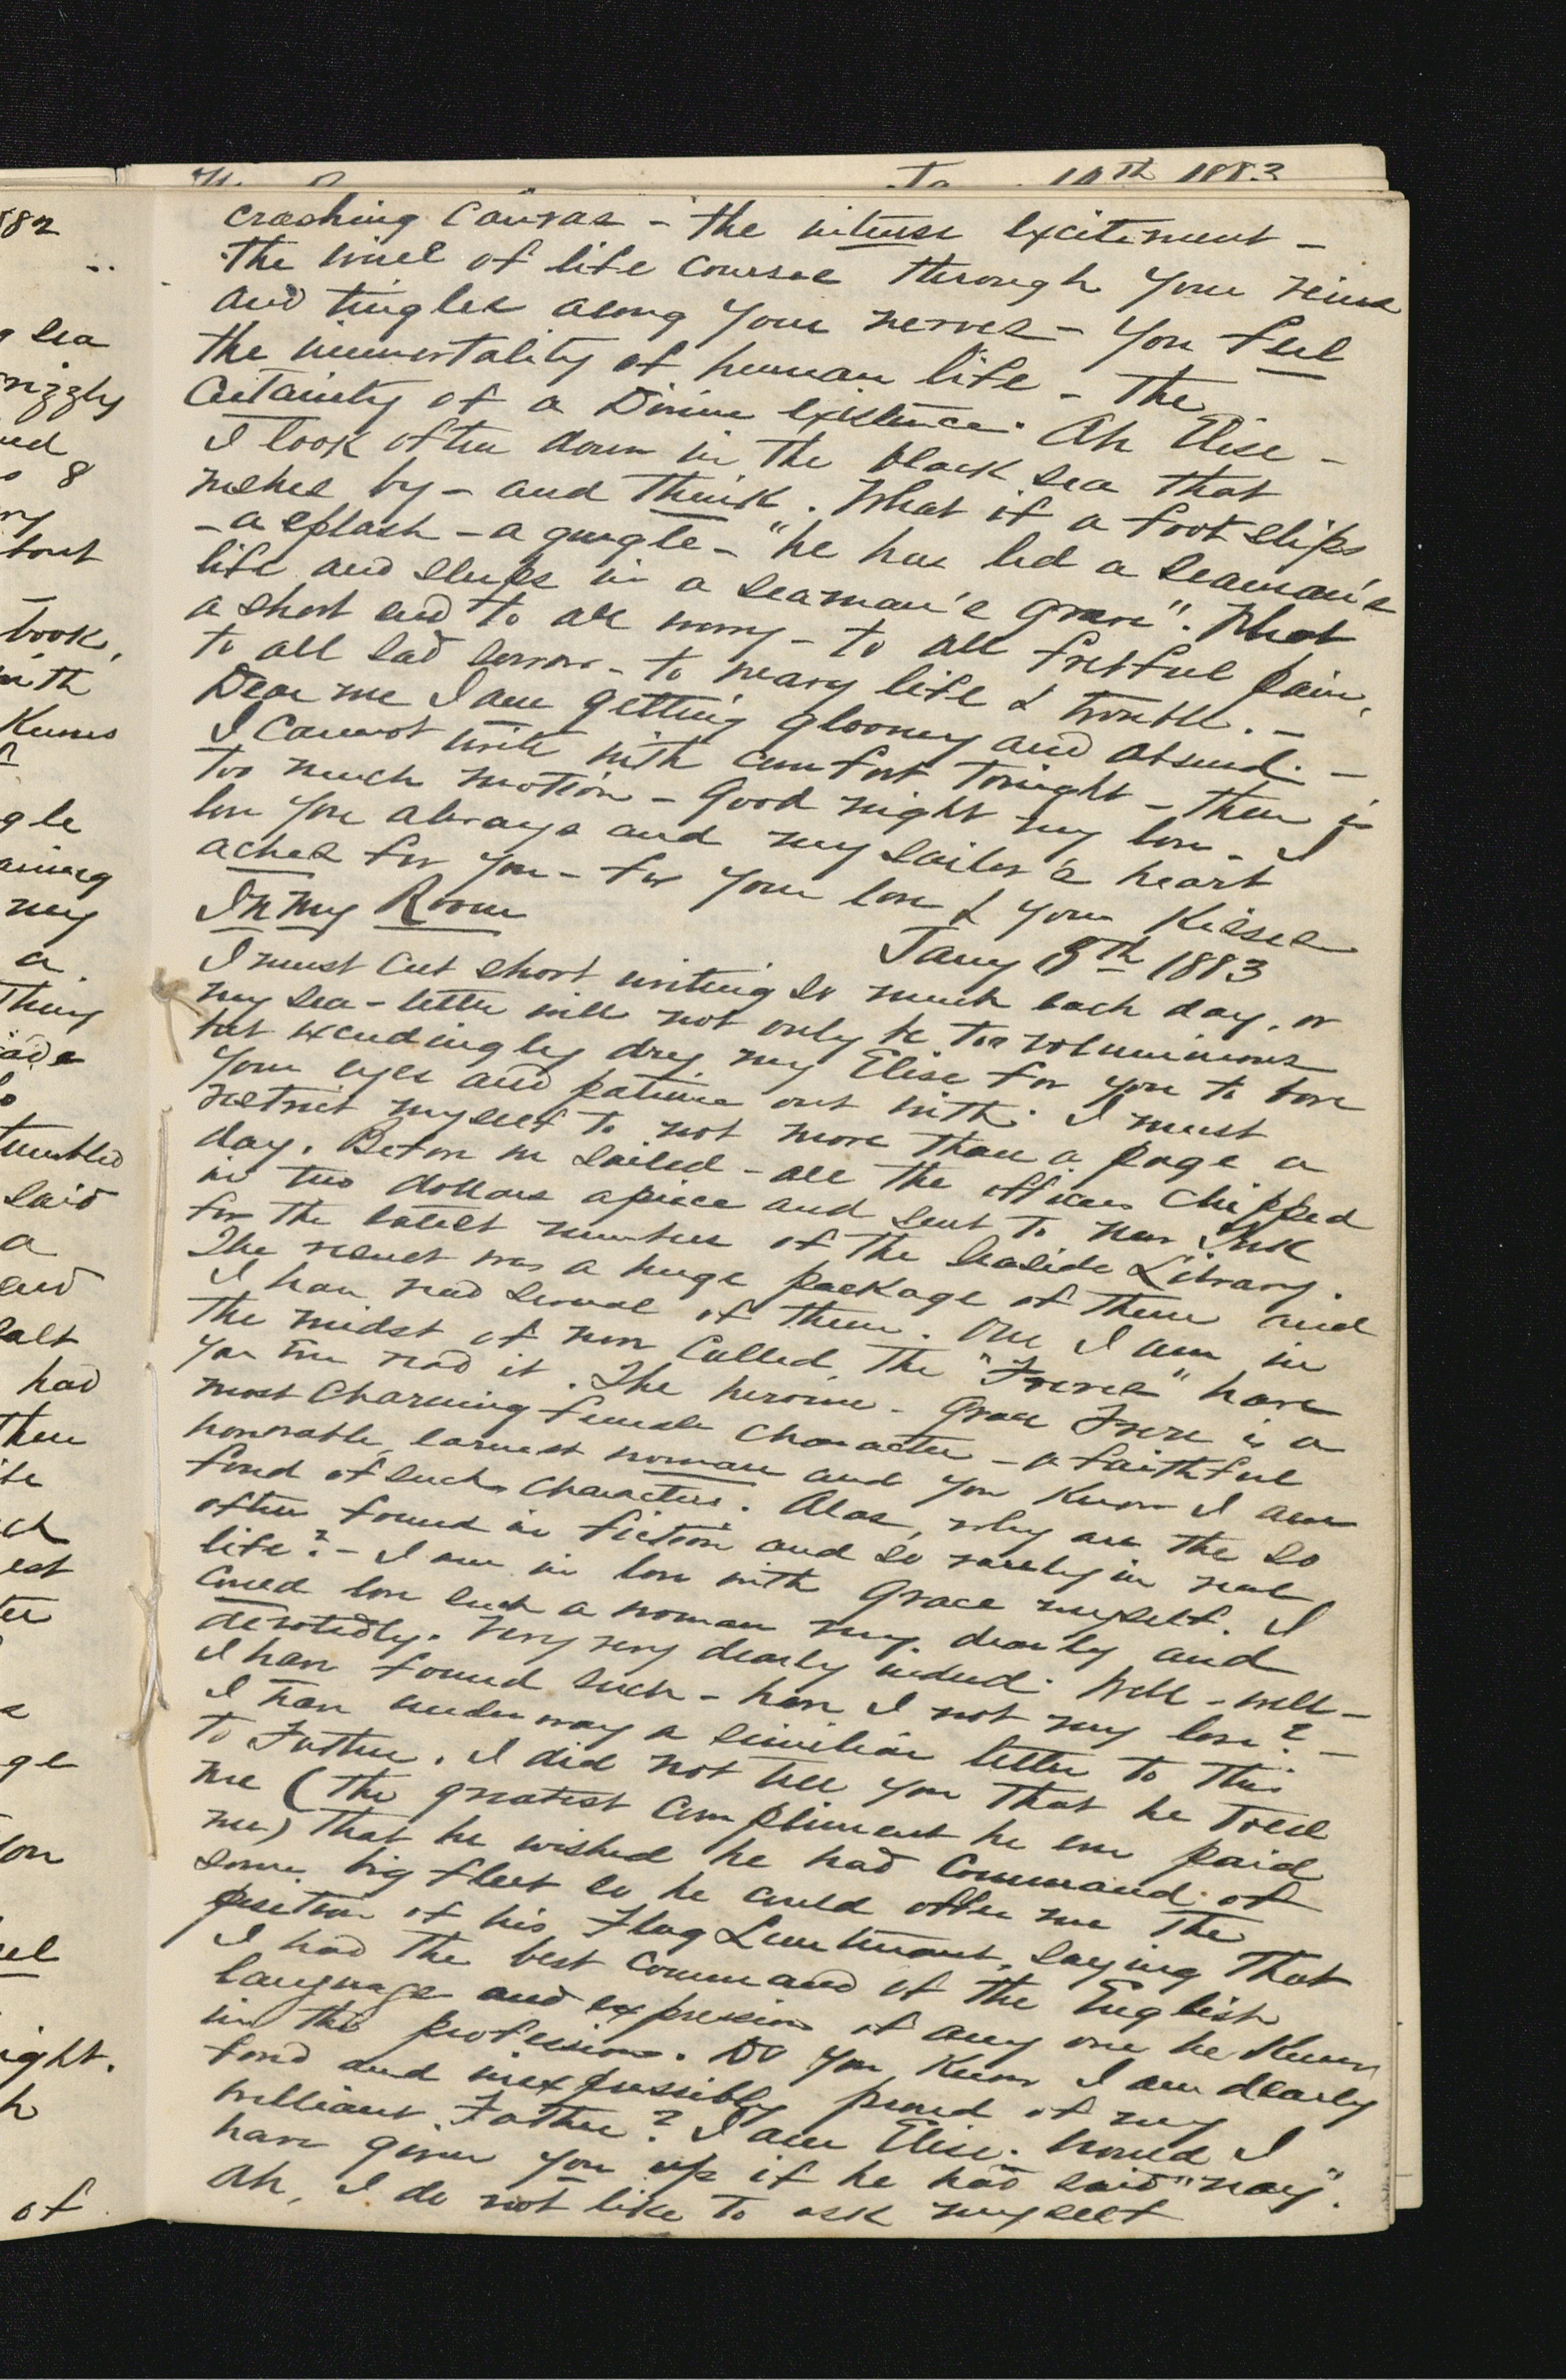 Jany 10th 1883
crashing canvas - the intense excitement -
the wine of life courses through your veins
and tingles along your nerves - you feel
the immortality of human life - the
certainty of a Divine existence. Ah Elise -
I look often down in the black sea that
rushes by - and think. What if a foot slips
- a splash - a gurgle - "he has led a seaman's
life and sleeps in a seaman's grave". What
a short end to all worry - to all fretful pain,
to all sad sorrow - to weary life & trouble. -
Dear me I am getting gloomy and absurd. -
I cannot write with comfort tonight - there is
too much motion - Good night my love - I
love you always and my sailor's heart
aches for you - for your love & your kisses
In my Room
Jany 8th 1883
I must cut short writing so much each day, or
my sea-letter will not only be too voluminous
but exceedingly dry my Elise for you to bore
your eyes and patience out with. I must
restrict myself to not more than a page a
day. Before we sailed - all the officers chipped
in two dollars apiece and sent to New York
for the latest numbers of the Seaside Library.
The result was a huge package of them and
I have read several of them. One I am in
the midst of now called, The "Freres" have
you ever read it. The heroine - Grace Frere is a
most charming female character - a faithful
honorable, earnest woman and you know I am
fond of such characters. Alas, why are the so
often found in fiction and so rarely in real
life? - I am in love with Grace myself. I
could love such a woman very dearly and
devotedly. Very very dearly indeed. Well - well -
I have found such - have I not my love? -
I have under way a similiar letter to this
to Father. I did not tell you that he told
me (the greatest compliment he ever paid
me) that he wished he had command of
some big fleet so he could offer me the
position of his Flag Lieutenant, saying that
I had the best command of the English
language and expression of any one he knew
in the profession. Do you know I am dearly
fond and inexpressibly proud of my
brilliant Father? I am Elise. Would I
have given you up if he had said "nay".
Ah, I do not like to ask myself